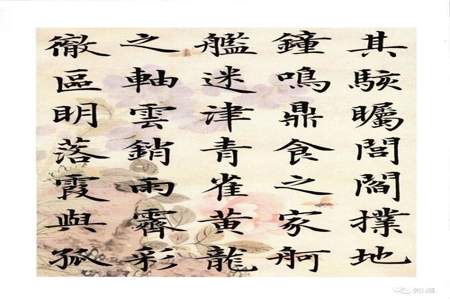 其駭矚閭閻撲地
鐘鳴鼎食之家舸
艦迷津青雀黃龍
之軸雲銷雨霽彩
徹區明落霞與孤